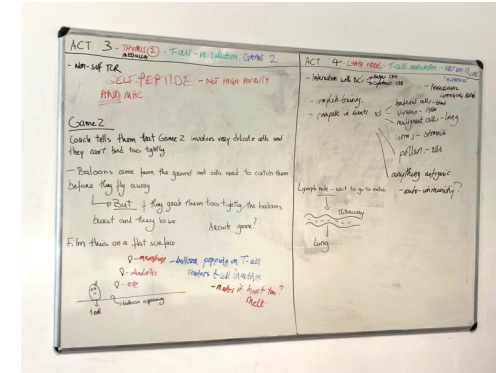 ACT 3 - THYMUS (2) - T-cell -ve selection GAME 2
MEDULLA
- Non-self TCR
SELF-PEPTIDE - NOT HIGH AVIDITY
AND MHC
Game 2
Coach tells them that Game 2 involves very delicate cells and
they can't bind too tightly
- Baloons come from the ground and cells need to catch them
before they fly away
BUT if they grab them too tightly, the baloons
burst and they lose
Arcade game?
Film this on a flat surface
- macrophage - balloon popping on T-cell
renders t-cell inactive
- makes it burst too?
Melt.
T cell
balloon appearing
ACT 4 - LYMPH NODE - T-cell
- Interaction with DCs
- complete training
- compete in events vs
bacterial cells -
viruses -
malignant cells - lung
worms - stomach
pollen -
anything antigenic
- auto-immunity?
Lymph node - want to go to
lung